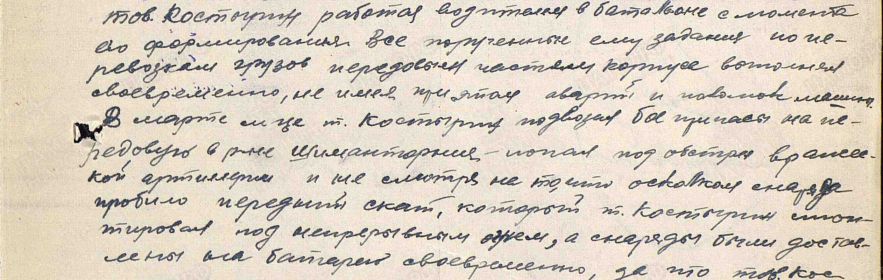 тов. Костырин работая водителем в батальоне с момента
его формирования. Все порученные ему задания по пе-
ревозкам грузов передовым частям корпуса выполнял
своевременно, не имея при этом аварий и поломок машин.
В марте м-це т. Костырин подвозил боеприпасы на пе-
редовую в р-не Шиманторния - попал под обстрел вражес-
кой артилерии и не смотря на то, что осколком снаряда
пробило передний скат, который т. Костырин смон-
тировал под непрерывным огнем, а снаряды были достав-
лены на батарею своевременно, за что тов. Кос-